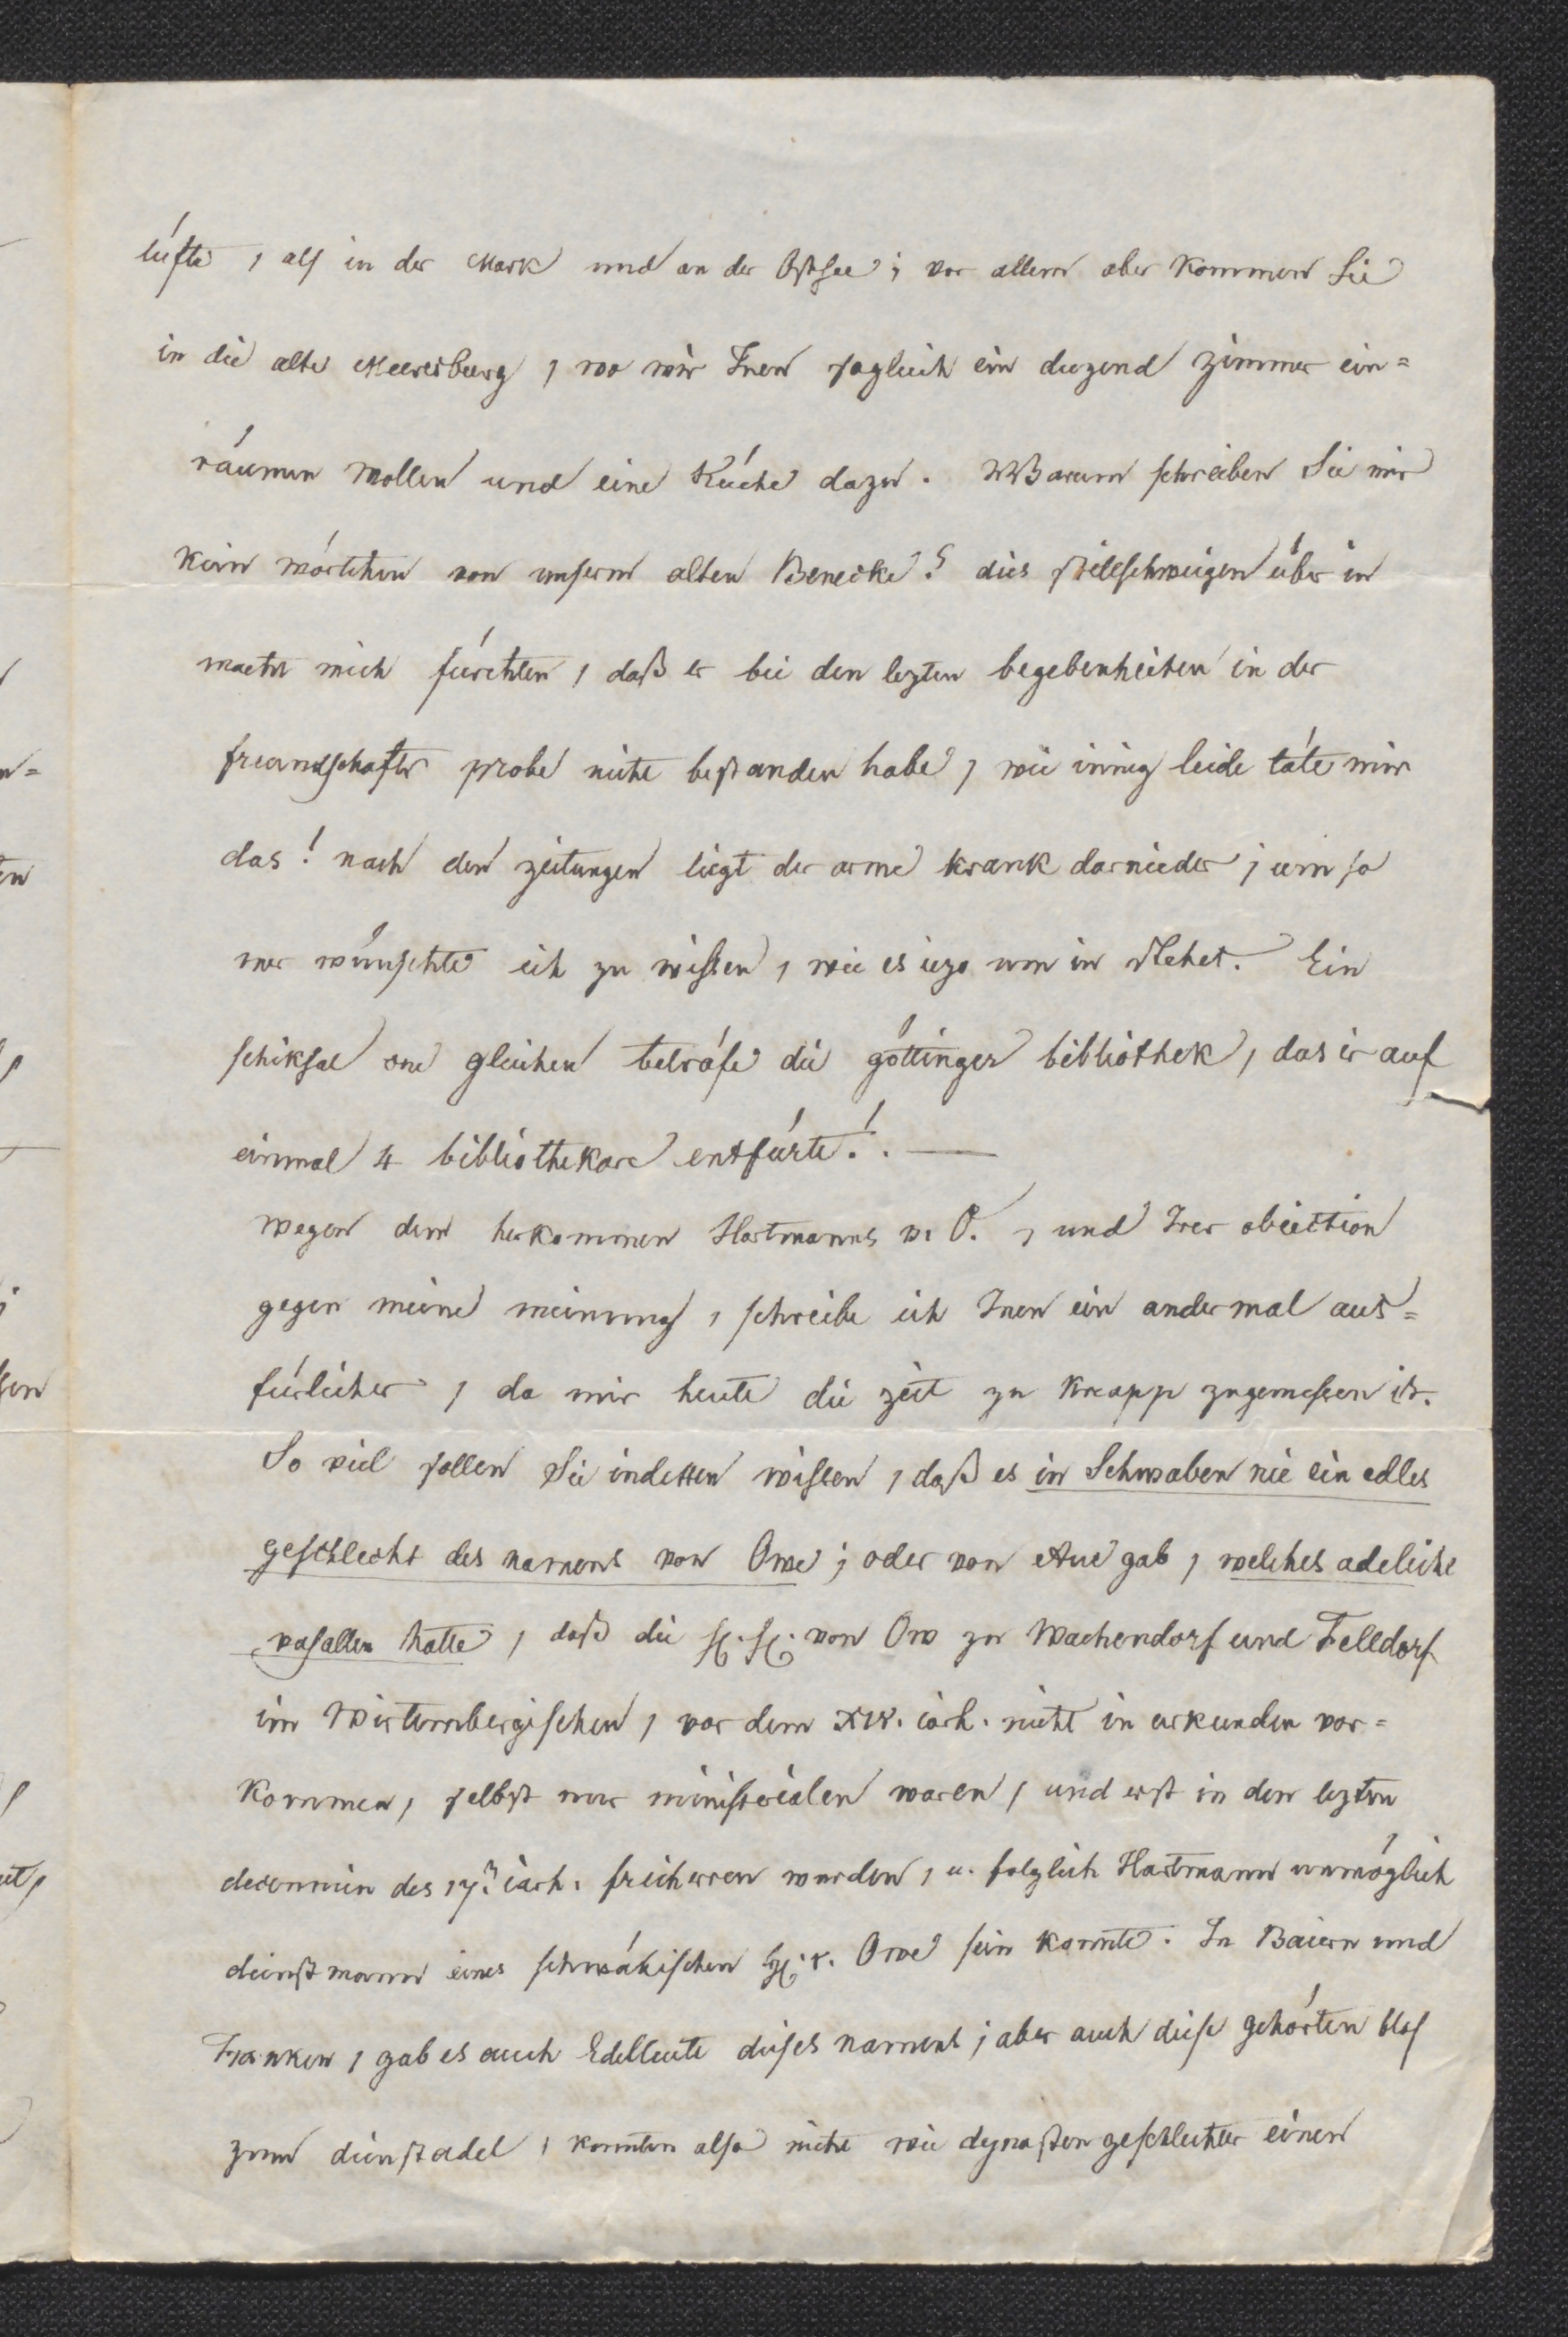 lüfte, als in der Mark und an der Ostsee; vor allem aber kommen Sie
in die alte Meersburg, wo wir Inen sogleich ein duzend zimmer ein=
räumen wollen und eine Küche dazu. Warum schreiben Sie mir
kein wörtchen von unserm alten Benecke? dies stillschweigen über in
macht mich fürchten, daß er bei den lezten begebenheiten in der
freundschafts probe nicht bestanden habe, wie innig leide täte mir
das! nach den zeitungen liegt der arme krank darnieder; um so
mer wünschte ich zu wissen, wie es iezo um in stehet. Ein
schiksal one gleichen beträfe die göttinger bibliothek, das ir auf
einmal 4 bibliothekare entfürte!. —
wegen dem herkommen Hartmanns v. O., und Irer obiection
gegen meine meinung, schreibe ich Inen ein andermal aus=
fürlicher, da mir heute die zeit zu knapp zugemessen ist.
So viel sollen Sie indessen wissen, daß es in Schwaben nie ein edles
geschlecht des namens von Owe; oder von Aue gab, welches adeliche
vasallen hatte, daß die von Ow zu Wachendorf und Felldorf
im Wirtembergischen, vor dem XIV. iarh. nicht in urkunden vor=
kommen, selbst nur ministerialen waren, und erst in den lezten
decennien des 17n iarh. freiherren wurden, u. folglich Hartmann unmöglich
dienstmann eines schwäbischen v. Owe sein konnte. In Baiern und
Franken, gab es auch Edelleute dieses namens; aber auch diese gehörten blos
zum dienstadel, konnten also nicht wie dynastengeschlechter einen